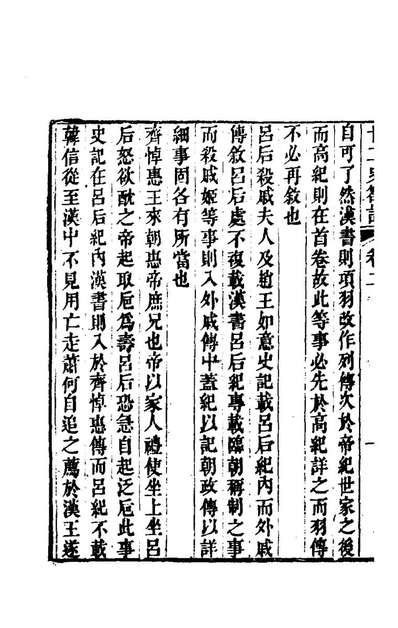 廿二史劄記 卷二
自可了然漢書則項羽改作列傳次於帝紀世家之後
而高紀則在首卷故此等事必先於高紀詳之而羽傳
不必再敘也
呂后殺戚夫人及趙王如意史記載呂后紀內而外戚
傳敘呂后處不復載漢書呂后紀專載臨朝稱制之事
而殺戚姬等事則入外戚傳中蓋紀以記朝政傳以詳
細事固各有所當也
齊悼惠王來朝惠帝庶兄也帝以家人禮使坐上坐呂
后怒欲酖之帝起取巵爲壽呂后恐急自起泛巵此事
史記在呂后紀內漢書則入於齊悼惠傳而呂紀不載
韓信從至漢中不見用亡走蕭何自追之薦於漢王遂